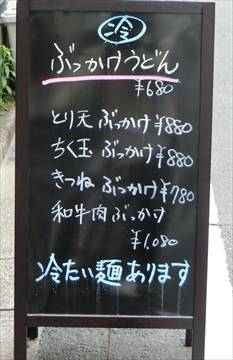 冷
ぶっかけうどん
¥680
とり天 ぶっかけ ¥880
ちく玉 ぶっかけ ¥880
きつね ぶっかけ ¥780
和牛肉 ぶっかけ
¥1,080
冷たい麺あります